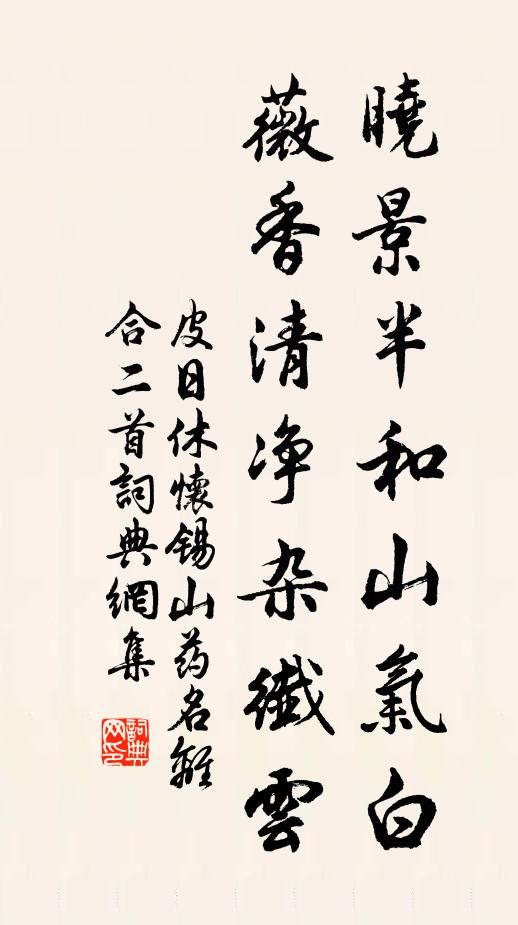 曉景半和山氣白
薇香清净杂纖雲
皮日休懷锡山药名離
合二首詞典網集
詞典网印